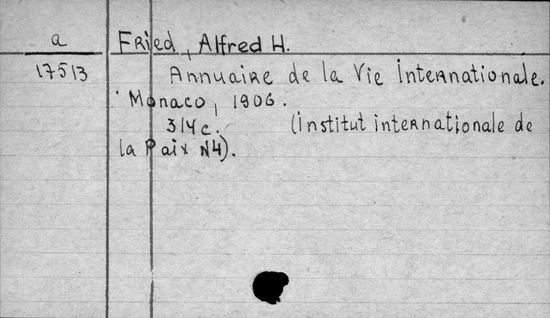 a Fried, Alfred H.
17513 Annuaire de la Vie Internationale.
Monaco, 1906.
314c. (institut internationale de
la Paix N4).